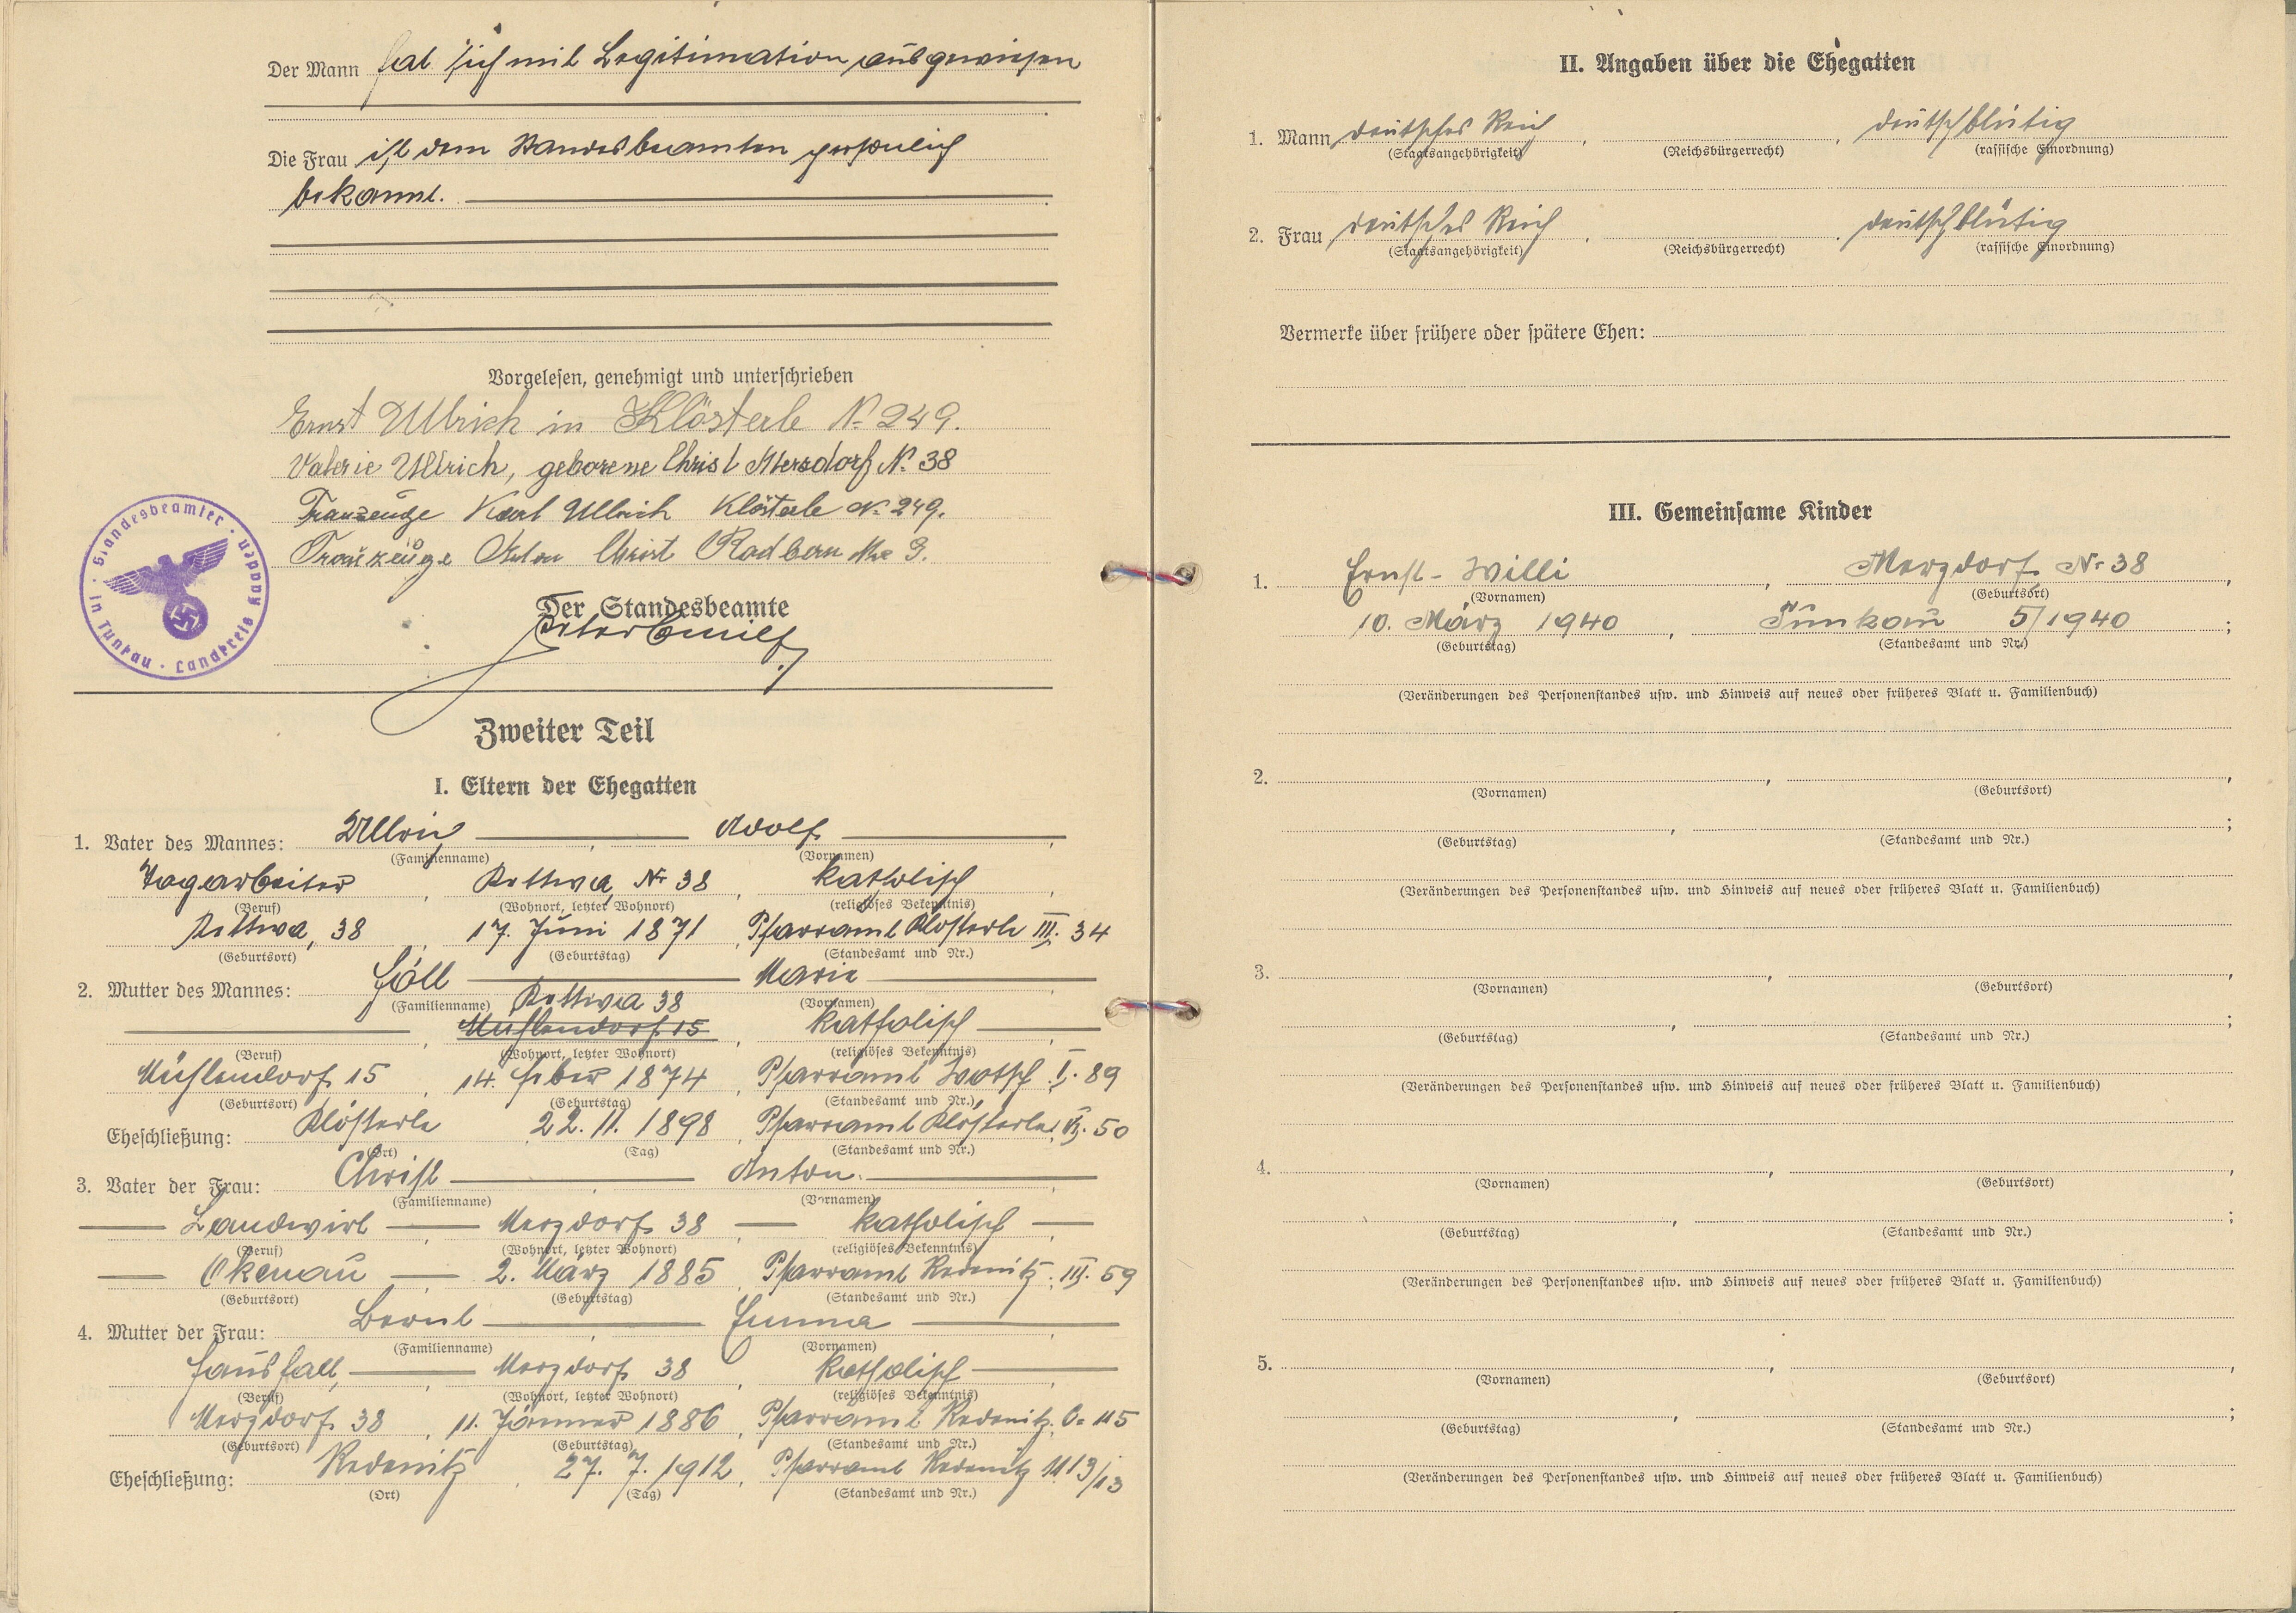 Der Mann hat sich mit Legitimation ausgewiesen
Die Frau ist dem Standesbeamten persönlich
bekannt.
Vorgelesen, genehmigt und unterschrieben
Ernst Ullrich in Klösterle N. 249.
Valerie Ullrich, geborene Christl Merzdorf N. 38
Trauzeuge Karl Ullrich Klösterle N. 249.
Trauzeuge Anton Christ Radbern Nr. 3.
Standesbeamter · in Tunkau · Landkreis Kaaden ·
Der Standesbeamte
Zweiter Teil
I. Eltern der Ehegatten
1. Vater des Mannes: Ullrich, Adolf,
(Familienname) (Vornamen)
Tagarbeiter, Kettwa, Nr 38, katholisch,
(Beruf) (Wohnort, letzter Wohnort) (religiöses Bekenntnis)
Kettwa, 38, 17. Juni 1871, Pfarramt Klösterle III. 34
(Geburtsort) (Geburtstag) (Standesamt und Nr.)
2. Mutter des Mannes: Höll Marie,
(Familienname) Kettwa 38 (Vornamen)
Mühlendorf 15, katholisch,
(Beruf) (Wohnort, letzter Wohnort) (religiöses Bekenntnis)
Mühlendorf 15, 14. feber 1874, Pfarramt Wotsch I. 89
(Geburtsort) (Geburtstag) (Standesamt und Nr.)
Eheschließung: Klösterle 22. 11. 1898, Pfarramt Klösterle 50
(Ort) (Tag) (Standesamt und Nr.)
3. Vater der Frau: Christl, Anton.
(Familienname) (Vornamen)
Landwirt, Merzdorf 38, katholisch,
(Beruf) (Wohnort, letzter Wohnort) (religiöses Bekenntnis)
Okenau 2. März 1885, Pfarramt Redenitz III. 59
(Geburtsort) (Geburtstag) (Standesamt und Nr.)
4. Mutter der Frau: Bernt, Emma,
(Familienname) (Vornamen)
Haushalt, Merzdorf 38, katholisch,
(Beruf) (Wohnort, letzter Wohnort) (religiöses Bekenntnis)
Merzdorf 38, 11. Jänner 1886, Pfarramt Redenitz 115
(Geburtsort) (Geburtstag) (Standesamt und Nr.)
Eheschließung: Redenitz, 27. 7. 1912, Pfarramt Redenitz
(Ort) (Tag) (Standesamt und Nr.)
II. Angaben über die Ehegatten
1. Mann deutsches Reich, , deutschblütig
(Staatsangehörigkeit) (Reichsbürgerrecht) (rassische Einordnung)
2. Frau deutsches Reich, , deutschblütig
(Staatsangehörigkeit) (Reichsbürgerrecht) (rassische Einordnung)
Vermerke über frühere oder spätere Ehen:
III. Gemeinsame Kinder
1. Ernst-Willi, Merzdorf, Nr 38,
(Vornamen) (Geburtsort)
10. März 1940, Tunkau 5/1940;
(Geburtstag) (Standesamt und Nr.)
(Veränderungen des Personenstandes usw. und Hinweis auf neues oder früheres Blatt u. Familienbuch)
2. , ,
(Vornamen) (Geburtsort)
, ;
(Geburtstag) (Standesamt und Nr.)
(Veränderungen des Personenstandes usw. und Hinweis auf neues oder früheres Blatt u. Familienbuch)
3. , ,
(Vornamen) (Geburtsort)
, ;
(Geburtstag) (Standesamt und Nr.)
(Veränderungen des Personenstandes usw. und Hinweis auf neues oder früheres Blatt u. Familienbuch)
4. , ,
(Vornamen) (Geburtsort)
, ;
(Geburtstag) (Standesamt und Nr.)
(Veränderungen des Personenstandes usw. und Hinweis auf neues oder früheres Blatt u. Familienbuch)
5. , ,
(Vornamen) (Geburtsort)
, ;
(Geburtstag) (Standesamt und Nr.)
(Veränderungen des Personenstandes usw. und Hinweis auf neues oder früheres Blatt u. Familienbuch)